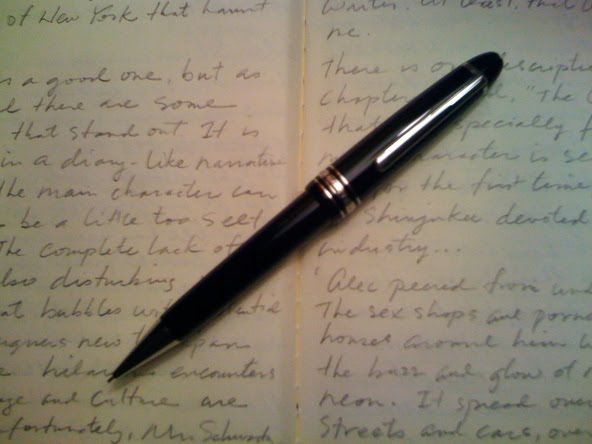 of New York that haunt
s a good one, but as
l there are some
that stand out. It is
in a diary-like narrative
the main character can
be a little too self
The complete lack of
also disturbing
at bubbles with
new
hilar encounters
age and culture are
fortunately, Mr. Schwartz
writer. At least, that
me.
There is on descriptio
chapter "The
that especially f
character is se
for the first time
Shinjuku devoted
industry...
"Alec peered from und
The sex shops and porno
houses around him
the buzz and glow of
neon. It spread over
streets and cars, over